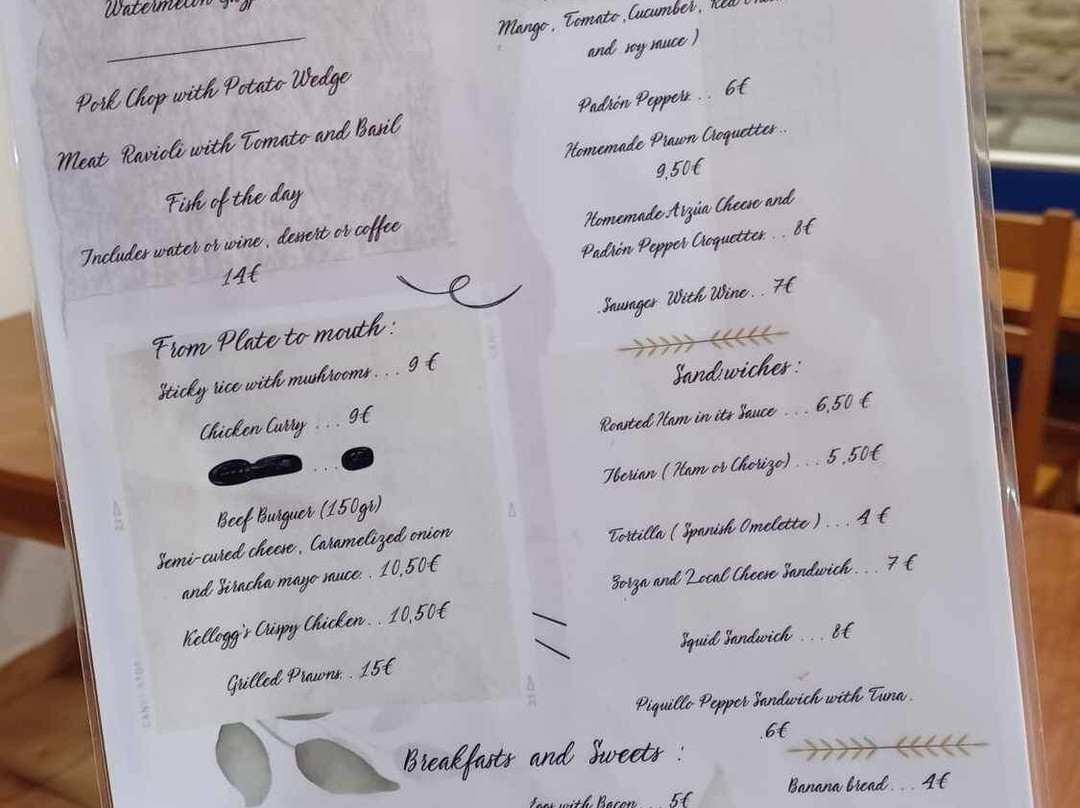 Watermelon
Pork Chop with Potato Wedge
Meat Ravioli with Tomato and Basil
Fish of the day
Includes water or wine, dessert or coffee
14€
From Plate to mouth:
Sticky rice with mushrooms... 9 €
Chicken Curry ... 9€
...
Beef Burguer (150gr)
Semi-cured cheese, Caramelized onion
and Siracha mayo sauce.. 10,50€
Kellogg's Crispy Chicken.. 10,50€
Grilled Prawns.. 15€
Mango, Tomato, Cucumber, Red
and soy sauce)
Padrón Peppers.. 6€
Homemade Prawn Croquettes..
9,50€
Homemade Arzúa Cheese and
Padrón Pepper Croquettes... 8€
Sausages With Wine.. 7€
Sandwiches:
Roasted Ham in its Sauce ... 6,50 €
Iberian (Ham or Chorizo) ... 5,50€
Tortilla (Spanish Omelette) ... 4 €
Zorza and Local Cheese Sandwich... 7 €
Squid Sandwich ... 8€
Piquillo Pepper Sandwich with Tuna.
.6€
Breakfasts and Sweets :
with Bacon ... 5€
Banana bread... 4€